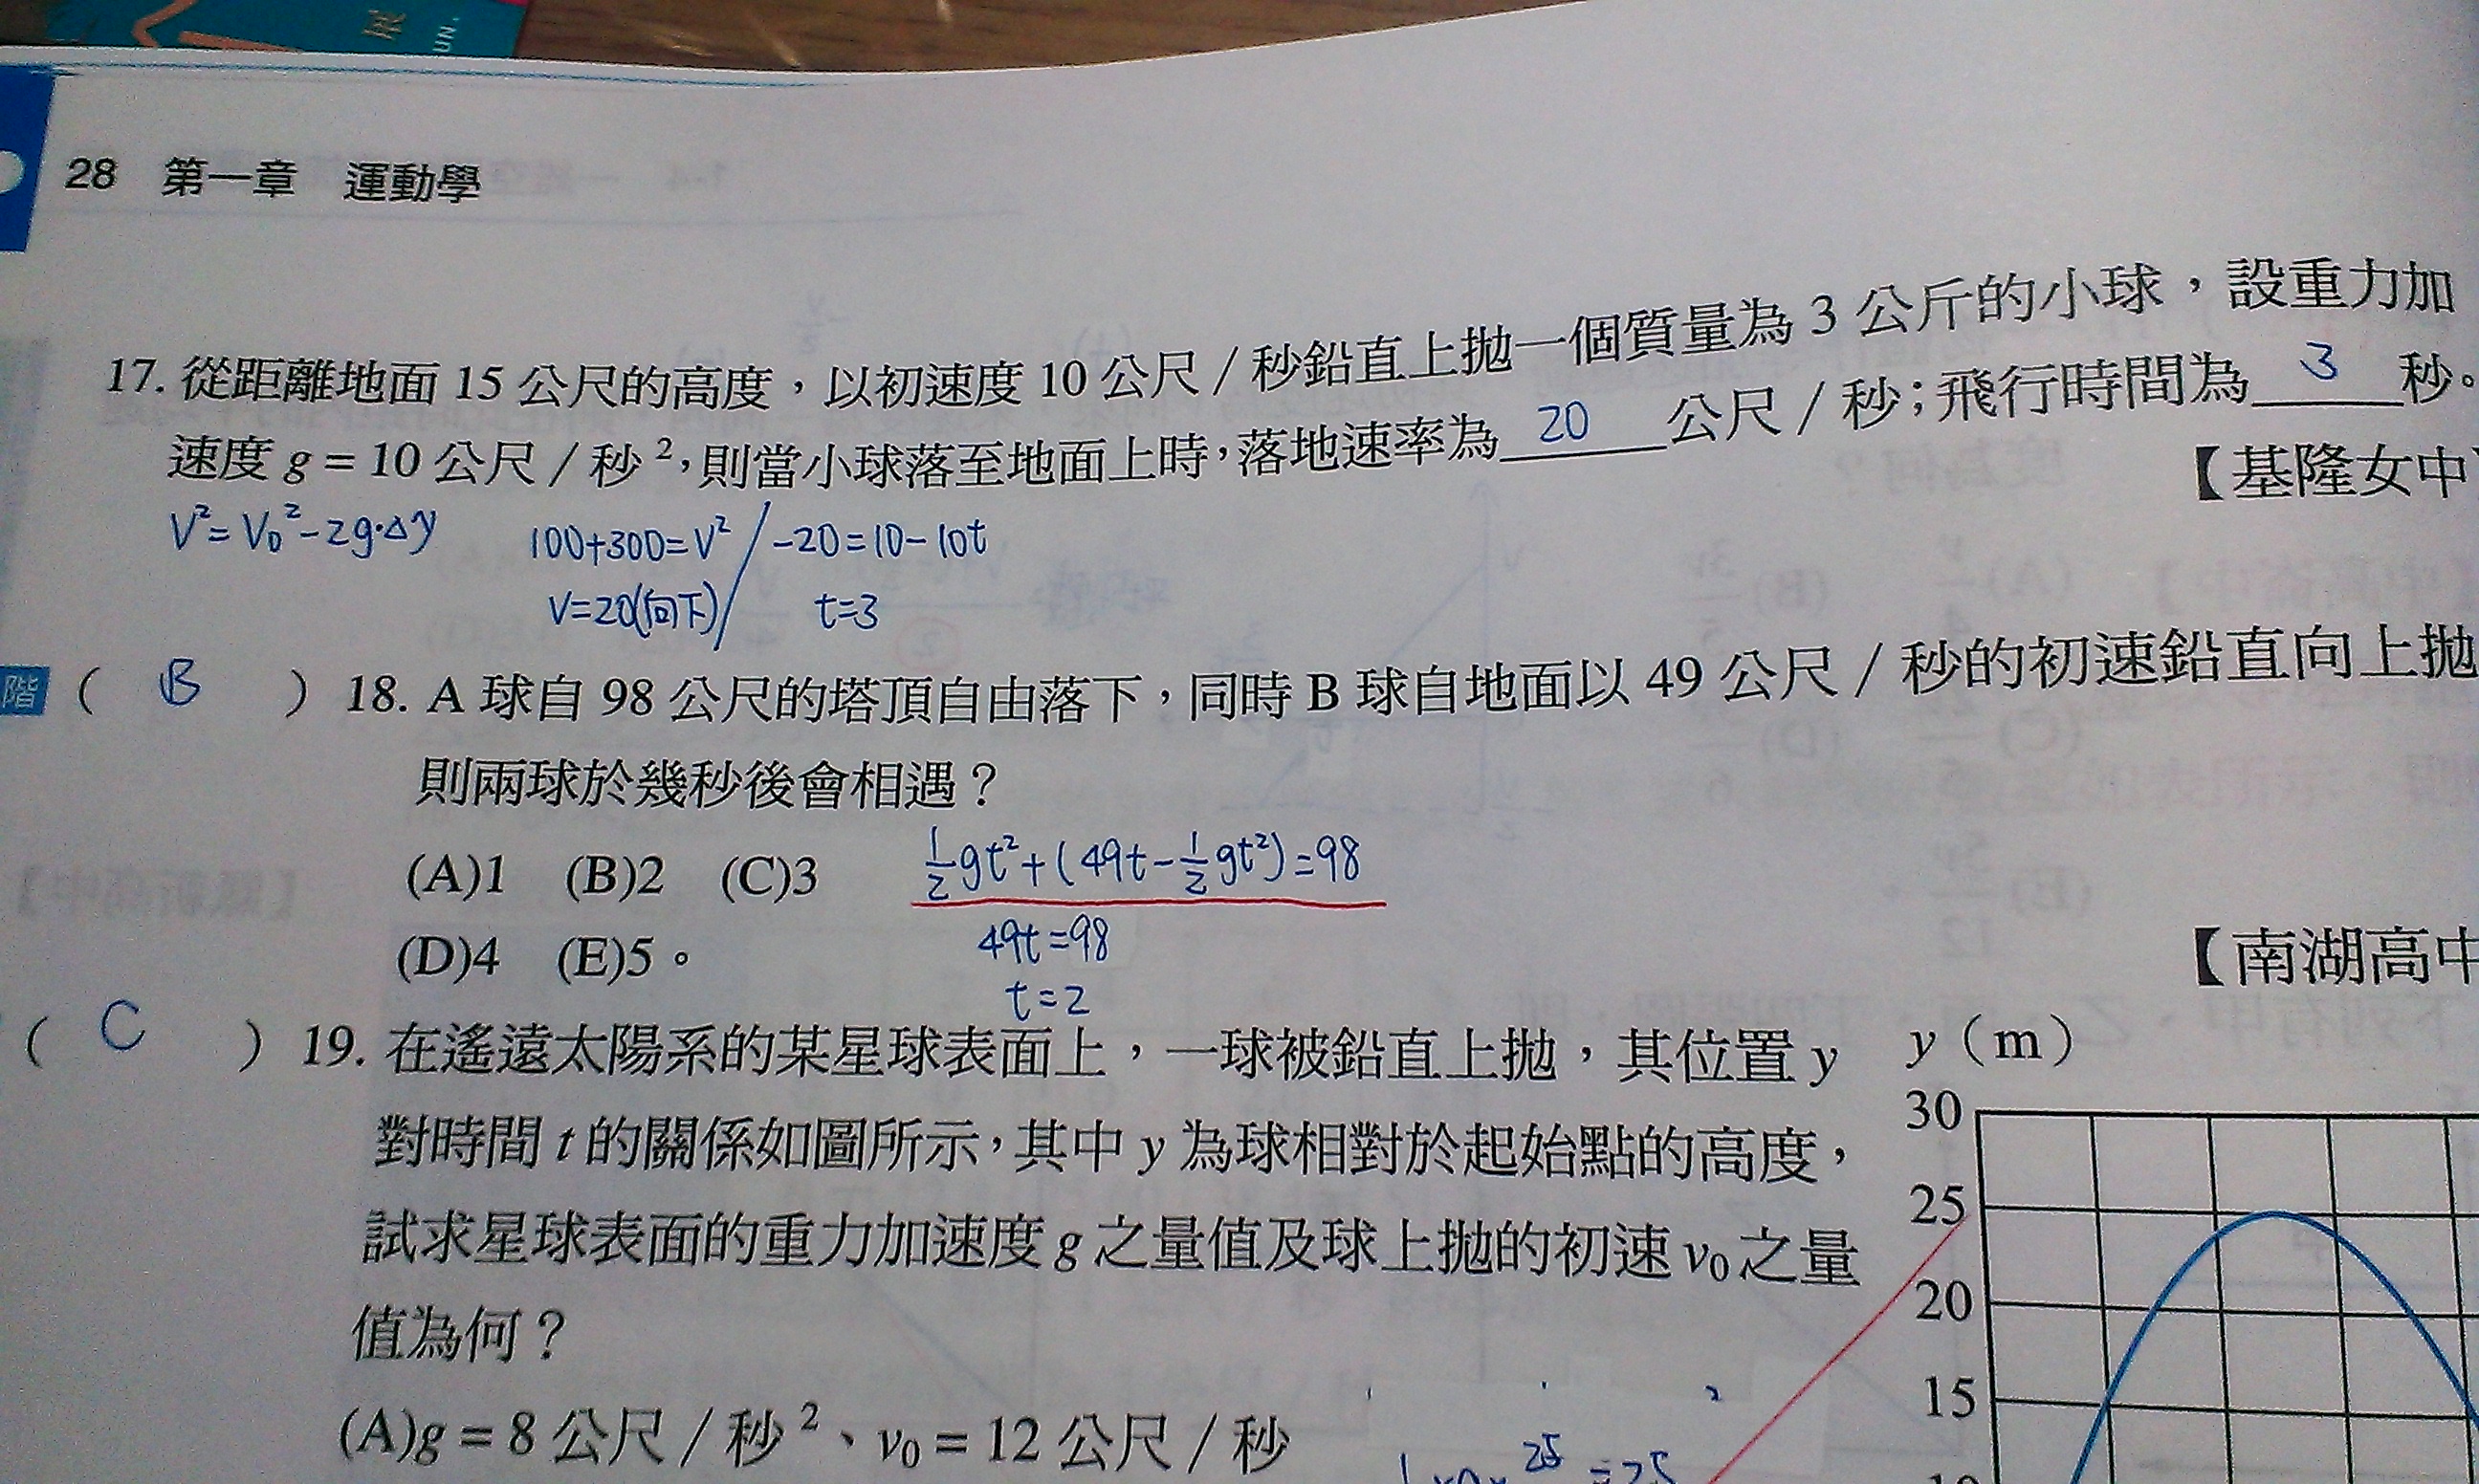 UN.
28 第一章 運動學
17. 從距離地面 15 公尺的高度，以初速度 10 公尺／秒鉛直上拋一個質量為 3 公斤的小球，設重力加
速度 g = 10 公尺／秒²，則當小球落至地面上時，落地速率為 20 公尺／秒；飛行時間為 3 秒。
【基隆女中
V²=V₀²-2g·Δy 100+300=V² / -20=10-10t
V=20(向下) t=3
階 ( B ) 18. A 球自 98 公尺的塔頂自由落下，同時 B 球自地面以 49 公尺／秒的初速鉛直向上拋
則兩球於幾秒後會相遇？
(A)1 (B)2 (C)3 ½gt²+(49t-½gt²)=98
(D)4 (E)5。 49t=98
【南湖高中
t=2
( C ) 19. 在遙遠太陽系的某星球表面上，一球被鉛直上拋，其位置 y
對時間 t 的關係如圖所示，其中 y 為球相對於起始點的高度，
試求星球表面的重力加速度 g 之量值及球上拋的初速 v₀ 之量
值為何？
(A)g = 8 公尺／秒²、v₀ = 12 公尺／秒
25 =25
y（m）
30
25
20
15
10